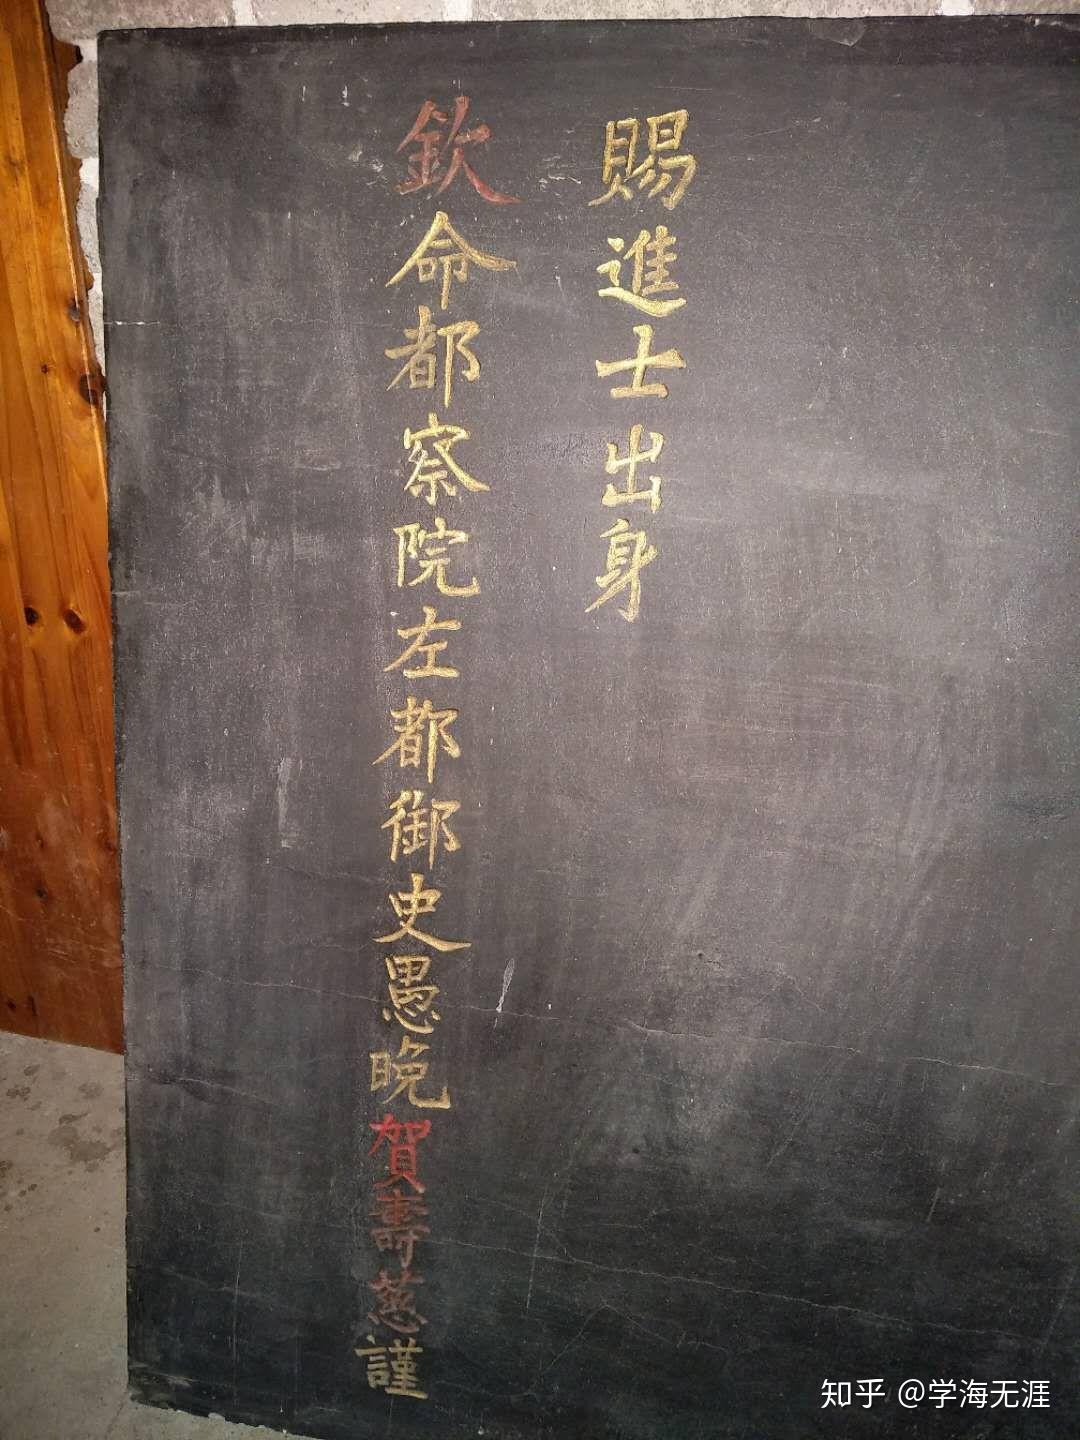 賜進士出身
欽命都察院左都御史愚晚賀壽慈謹
知乎 @学海无涯